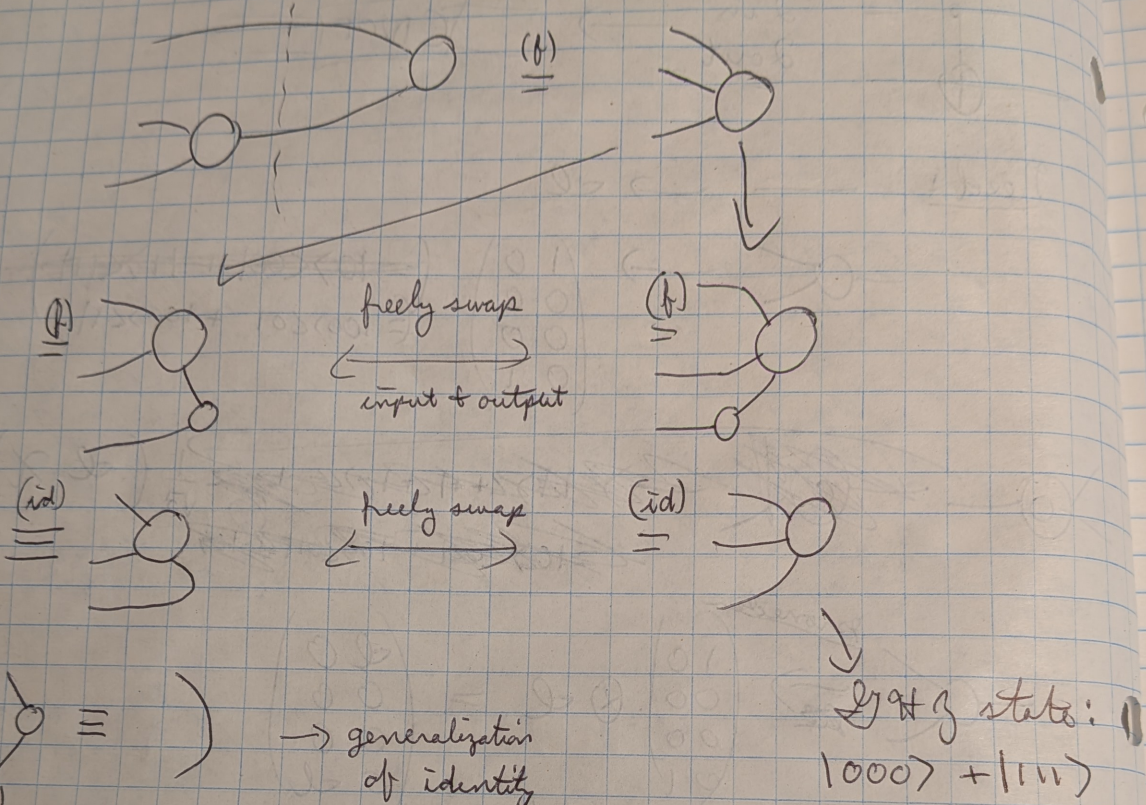 (f)
=
(f)
=
freely swap
input & output
(f)
=
(id)
≡
freely swap
(id)
=
≡
→ generalization
of identity
GHZ state:
|000⟩ + |111⟩